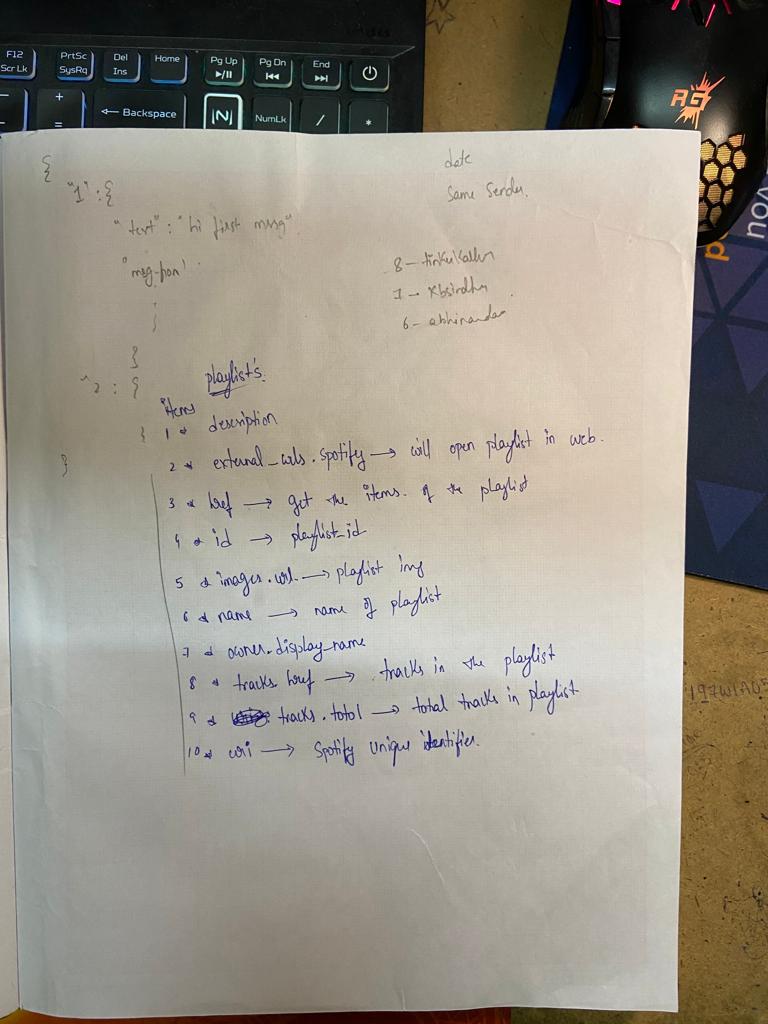 F12
Scr Lk
PrtSc
SysRq
Del
Ins
Home
Pg Up
Pg Dn
End
+
=
Backspace
NumLk
/
*
{
date
"1" : {
Same Sender.
"text" : "hi first mssg"
8 -
7 -
6 - abhinandan
}
"2 : {
playlist's.
items
{
}
1 * description
2 * external_urls.spotify → will open playlist in web.
3 * href → get the items. of the playlist
4 * id → playlist_id
5 * images.url → playlist img
6 * name → name of playlist
7 * owner.display_name
8 * tracks.href → tracks in the playlist
9 * tracks.total → total tracks in playlist
10 * uri → Spotify unique identifier.